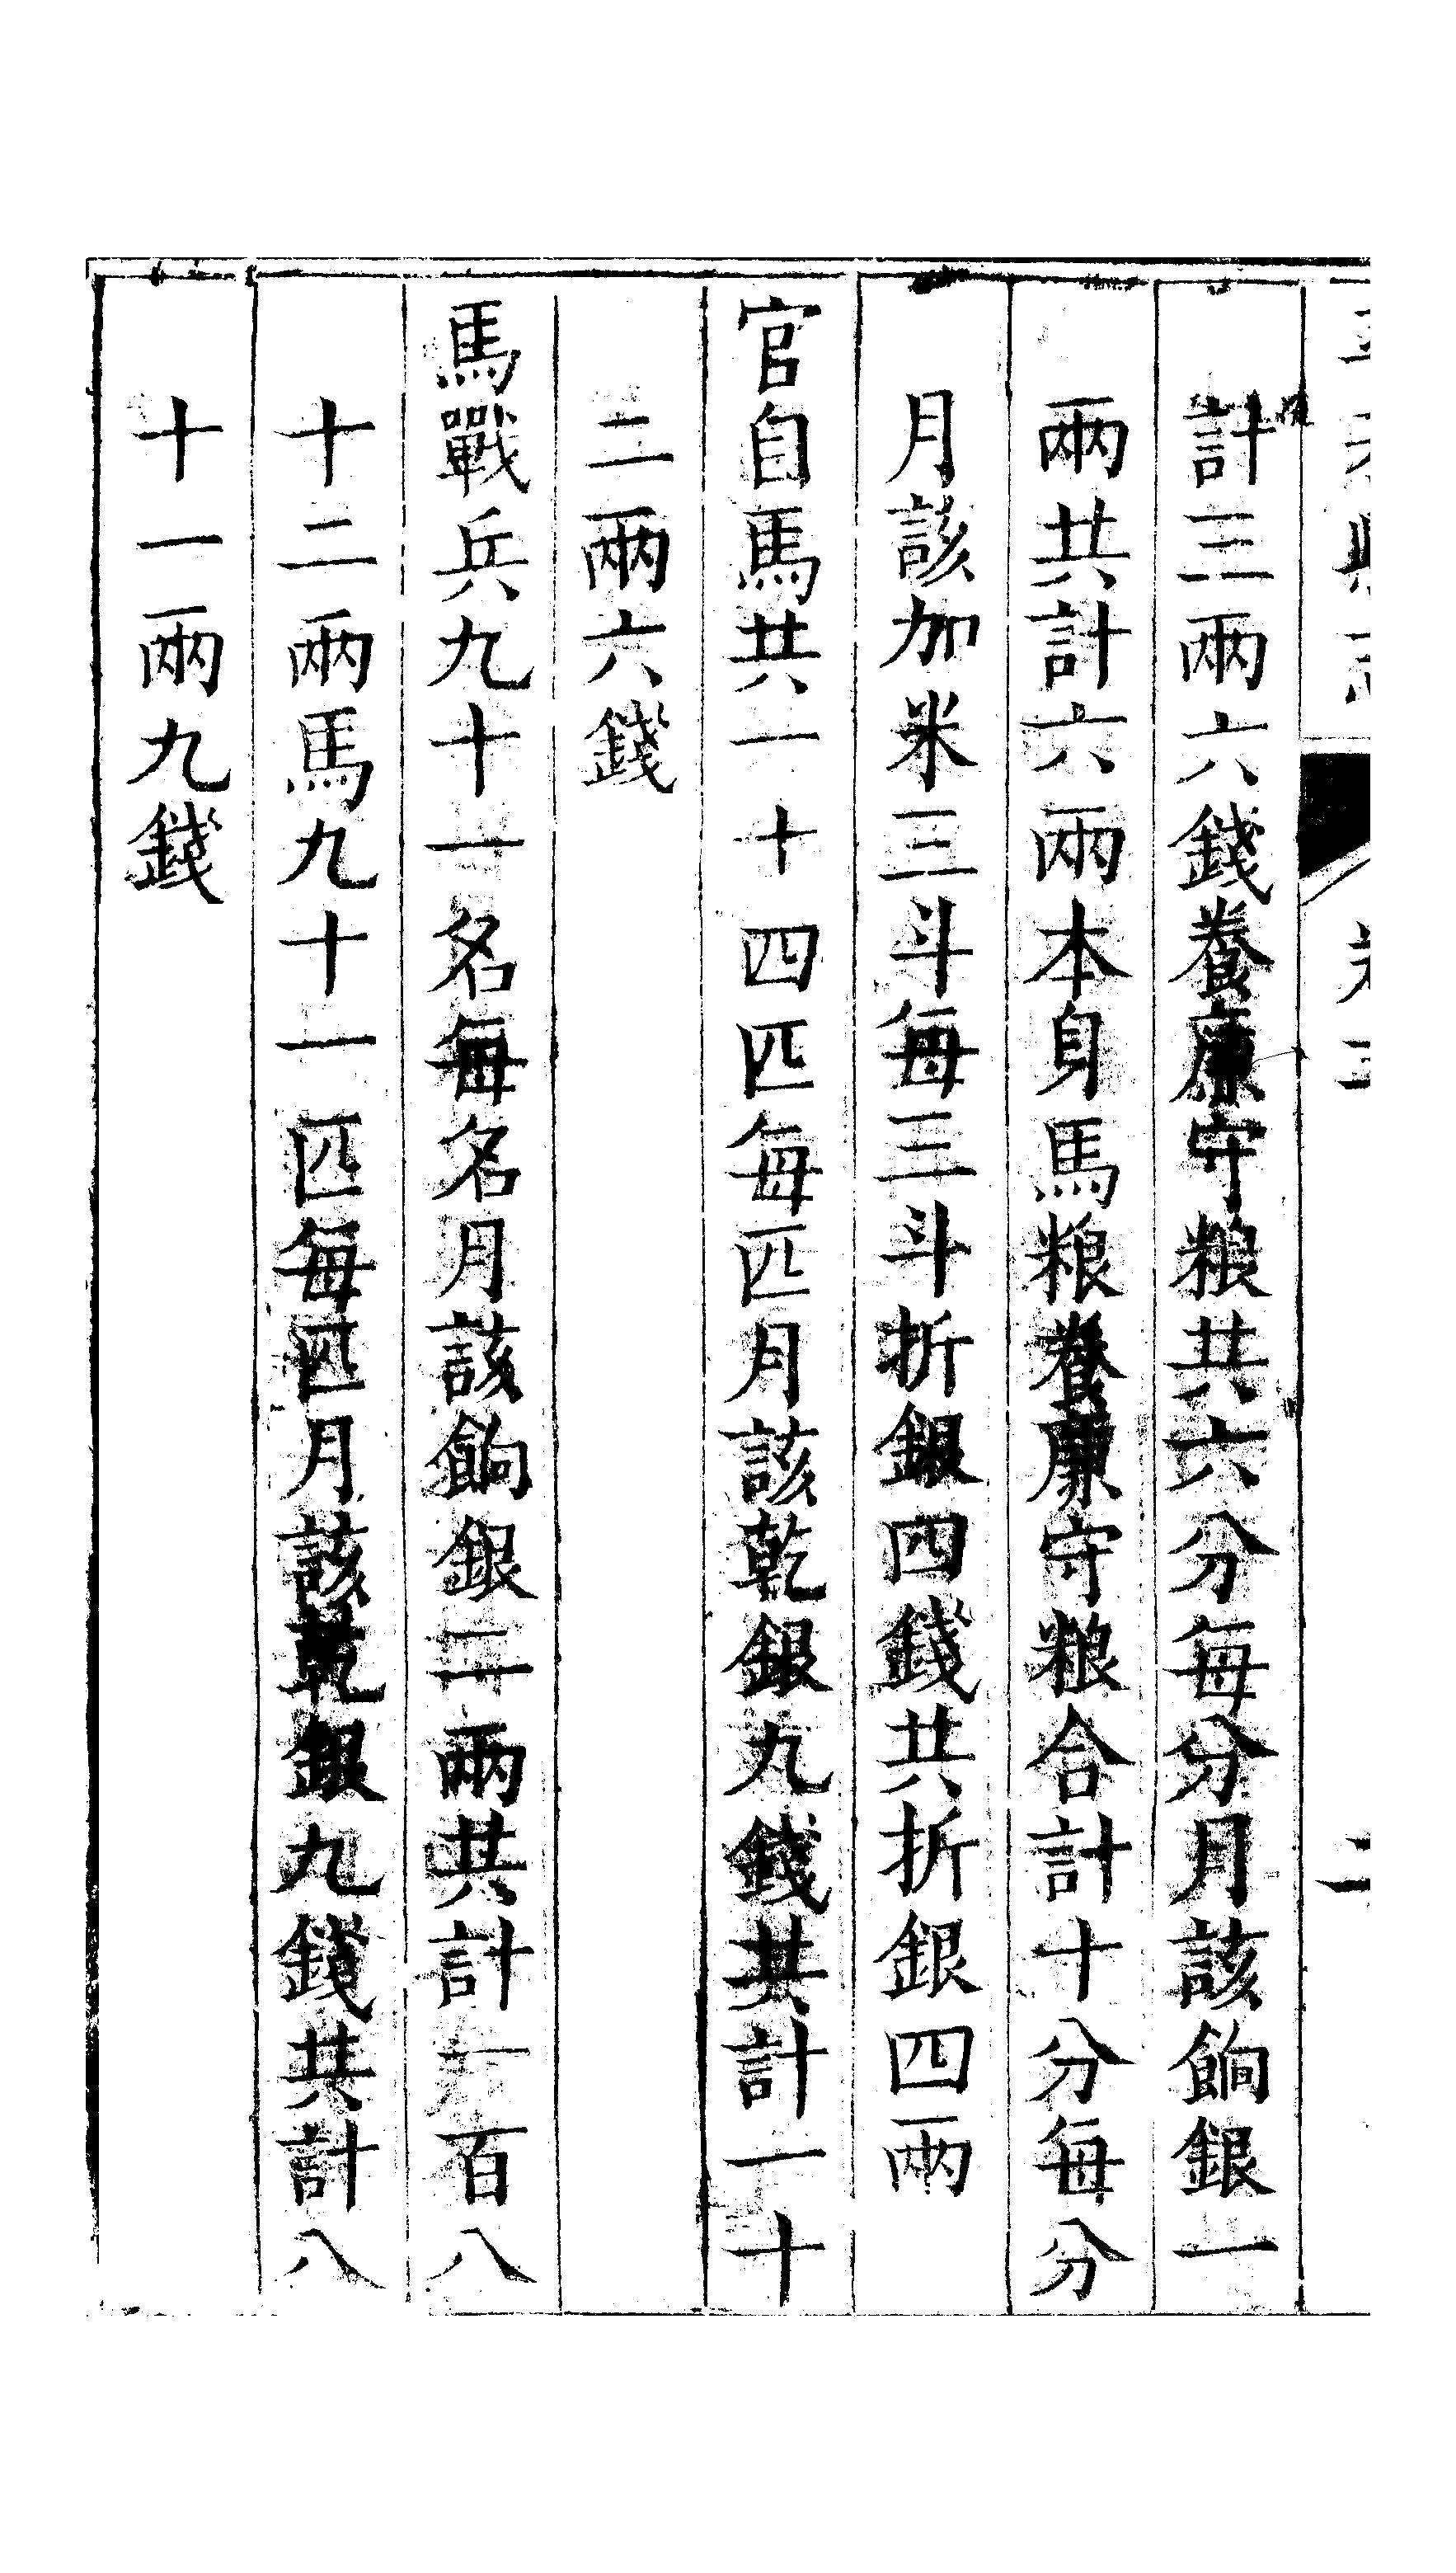 計三兩六錢養廉守粮共六分每分月該餉銀一
兩共計六兩本身馬粮養廉守粮合計十分每分
月該加米三斗每三斗折銀四錢共折銀四兩
官自馬共一十四匹每匹月該乾銀九錢共計一十
二兩六錢
馬戰兵九十一名每名月該餉銀二兩共計一百八
十二兩馬九十一匹每匹月該乾銀九錢共計八
十一兩九錢